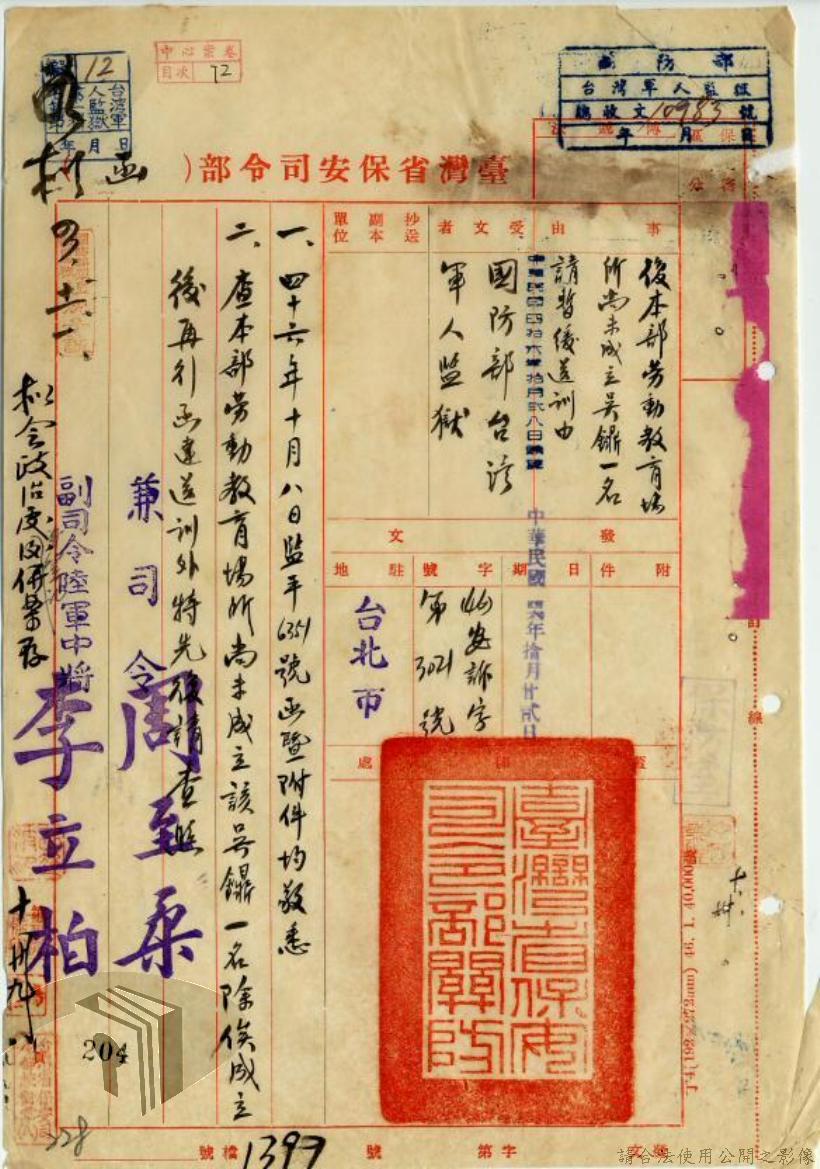 國防部
台灣軍人監獄
總收文10983號
年 月 日
中心案卷
目次 72
12
台灣軍
人監獄
年 月 日
臺灣省保安司令部( 函
事由
復本部勞動教育場
所尚未成立吳鏞一名
請暫緩送訓由
受文者
國防部台灣
軍人監獄
抄送
副本
單位
附件
發文
日期
中華民國 年拾月廿貳日
字號
(46)安訴字
第3021號
駐地
台北市
一、四十六年十月八日監平6351號函暨附件均敬悉
二、查本部勞動教育場所尚未成立該吳鏞一名除俟成立
後再行函達送訓外特先復請查照
兼司令周至柔
副司令陸軍中將李立柏
擬令政治處
臺灣省保安司令部關防
204
228
檔號 1397
字第 號
線
請合法使用公開之影像